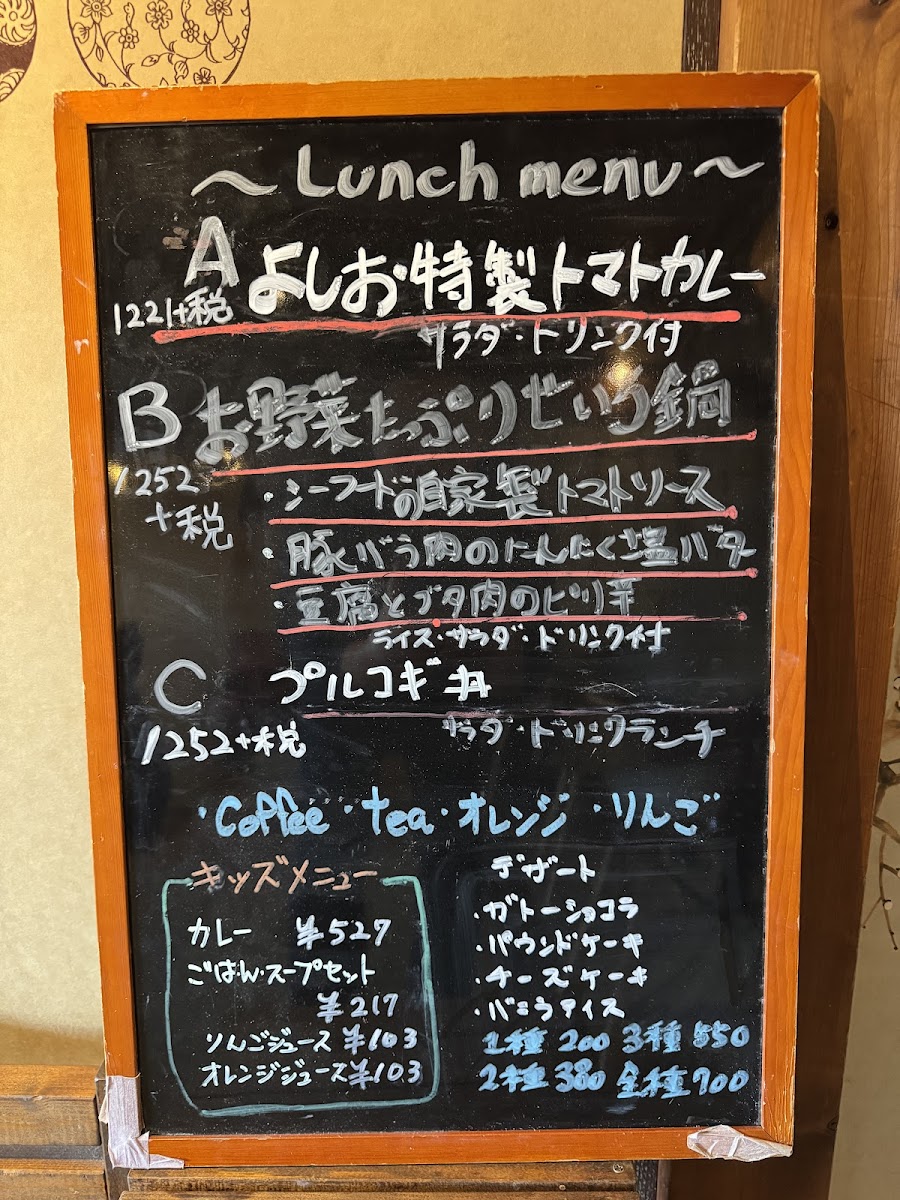 ～Lunch menu～
A よしお特製トマトカレー
1221+税
サラダ・ドリンク付
B お野菜たっぷりせいろ鍋
1252
+税
・シーフードの自家製トマトソース
・豚バラ肉のにんにく塩バター
豆腐とブタ肉のピリ辛
ライス・サラダ・ドリンク付
C プルコギ丼
1252+税
サラダ・ドリンクランチ
・Coffee ・tea ・オレンジ ・りんご
キッズメニュー
カレー ¥527
ごはん・スープセット
¥217
りんごジュース ¥103
オレンジジュース ¥103
デザート
・ガトーショコラ
・パウンドケーキ
・チーズケーキ
・バニラアイス
1種 200 3種 550
2種 380 全種 700